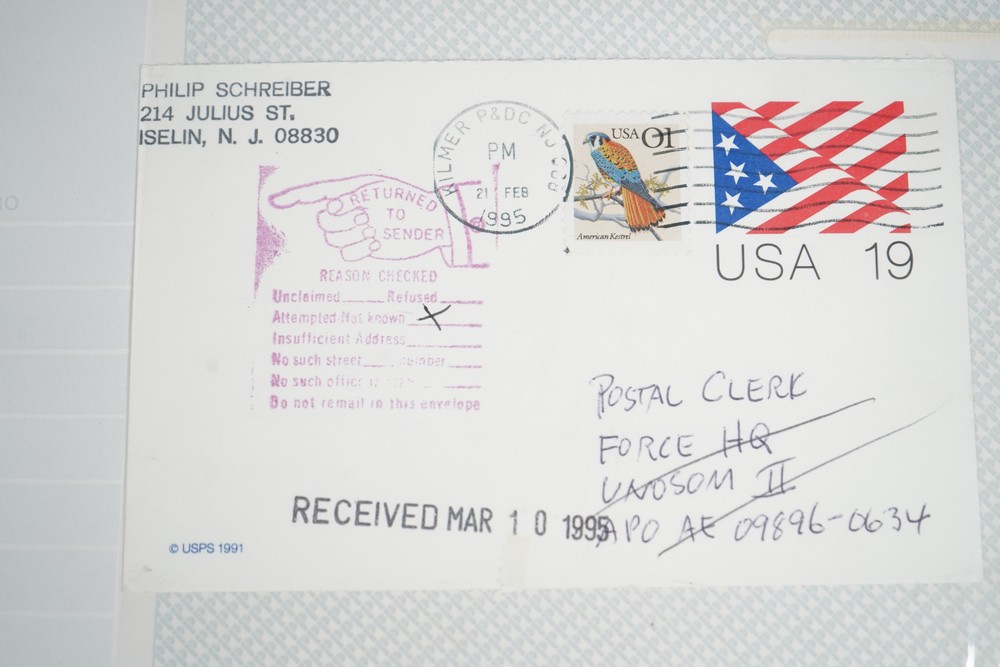 PHILIP SCHREIBER
214 JULIUS ST.
ISELIN, N. J. 08830
WILMER P&DC NJ 088
PM
21 FEB
1995
USA 01
American Kestrel
USA 19
RETURNED
TO
SENDER
REASON CHECKED
Unclaimed Refused
Attempted-Not known X
Insufficient Address
No such street number
No such office
Do not remail in this envelope
POSTAL CLERK
FORCE HQ
UNOSOM II
APO AE 09896-0634
RECEIVED MAR 10 1995
© USPS 1991